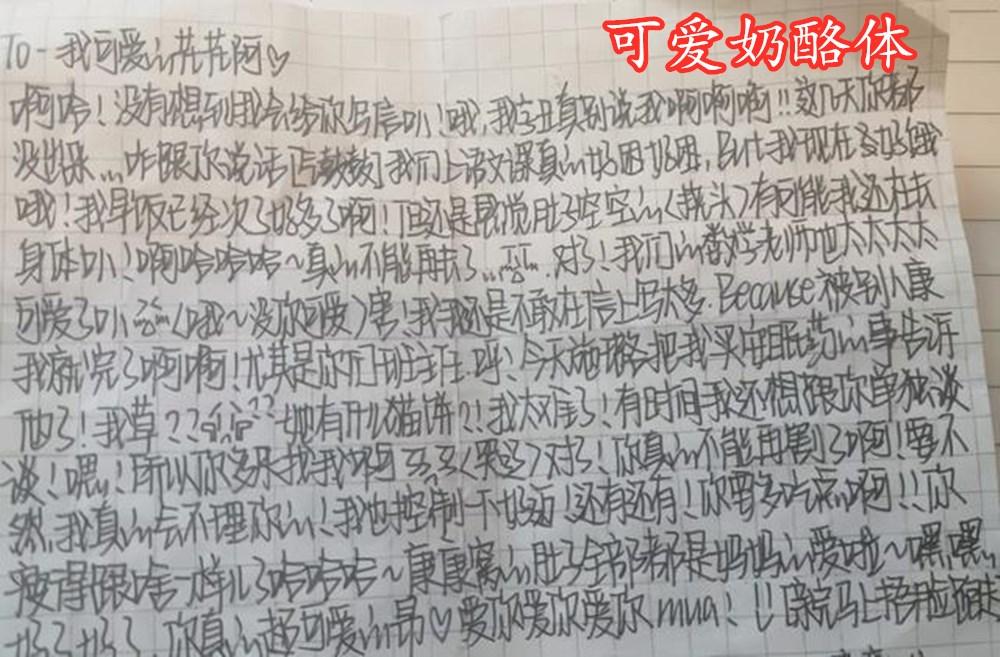 可爱奶酪体
To-我可爱的花花阿♡
啊哈！没有想到我会给你写信叭！哦，我这丑真别说我啊啊啊!!这几天你都
没出来...咋跟你说话[气鼓鼓]我们上语文课真的好困好困，But我现在多好饿
哦！我早饭已经次了好多了啊！但还是感觉肚子空空的(挠头)有可能我还在长
身体叭！啊哈哈哈~真的不能再长了...对了！我们的数学老师也太太太太
可爱了叭(哦~没你可爱)害！我还是不敢在信上写太多. Because 被别人康
我就完了啊啊！尤其是你们班班主任.呼、今天她把我买安眠药的事告诉
他了！我草??她有什么猫饼?!我太难了！有时间我还想跟你单独谈
谈！嗯！所以你多来找我啊(哭唧唧)对了！你真的不能再割了啊！要不
然,我真的会不理你的！我也控制一下好勒！还有还有！你要多吃点啊!!你
瘦得跟啥一样儿了哈哈哈~康康窝的肚子全部都是妈妈的爱啦~嘿,嘿,
好了好了 你真的超可爱的昂♡爱你爱你爱你 mua!